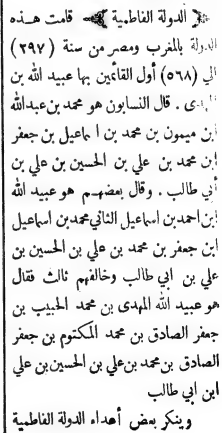 ﴿ الدولة الفاطمية ﴾ قامت هذه
الدولة بالمغرب ومصر من سنة (٢٩٧)
الي (٥٦٨) أول القائمين بها عبيد الله بن
المهدى . قال النسابون هو محمد بن عبدالله
ابن ميمون بن محمد بن اسماعيل بن جعفر
ابن محمد بن علي بن الحسين بن علي بن
أبي طالب . وقال بعضهم هو عبيد الله
ابن احمد بن اسماعيل الثاني محمد بن اسماعيل
ابن جعفر بن محمد بن علي بن الحسين بن
علي بن ابي طالب وخالفهم ثالث فقال
هو عبيد الله المهدى بن محمد الحبيب بن
جعفر الصادق بن محمد المكتوم بن جعفر
الصادق بن محمد بن علي بن الحسين بن علي
ابن ابي طالب
وينكر بعض أعداء الدولة الفاطمية